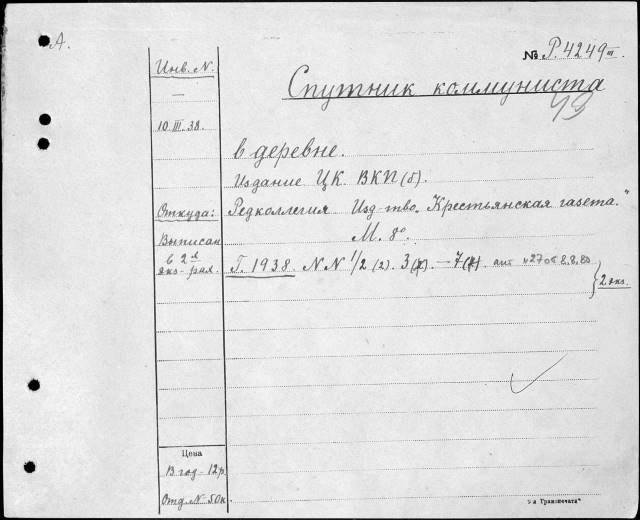 А.
№ Р.4249 III
Инв. N.
—
Спутник коммуниста
49
10.III.38.
в деревне.
Издание ЦК. ВКП(б).
Откуда:
Редколлегия Изд-тво. „Крестьянская газета."
Выписан
М. 8°.
в 2 х
экз-рах.
Г. 1938. N N 1/2 (2). 3 — 7 акт №27 от 8.8.80
2 экз.
Цена
В год - 12р
Отд. N 50к
Транспечать"